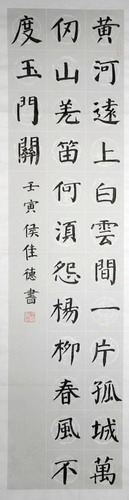 黃河遠上白雲間一片孤城萬
仞山羌笛何須怨楊柳春風不
度玉門關
壬寅侯佳德書